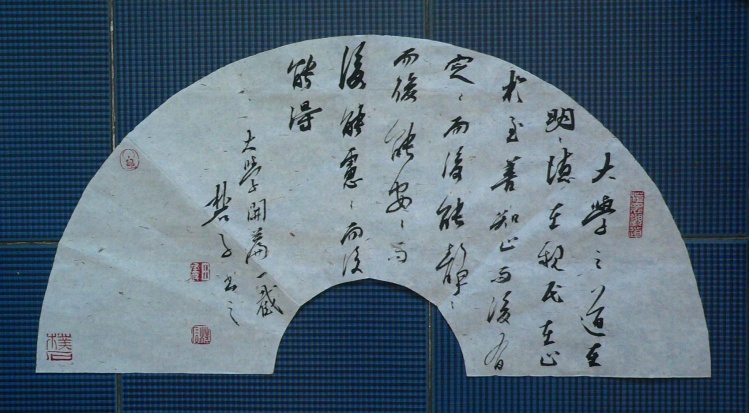 大學之道在
明〻德在親民在止
於至善知止而後有
定〻而後能靜〻
而後能安〻而
後能慮〻而後
能得
大學開篇一截
子書之